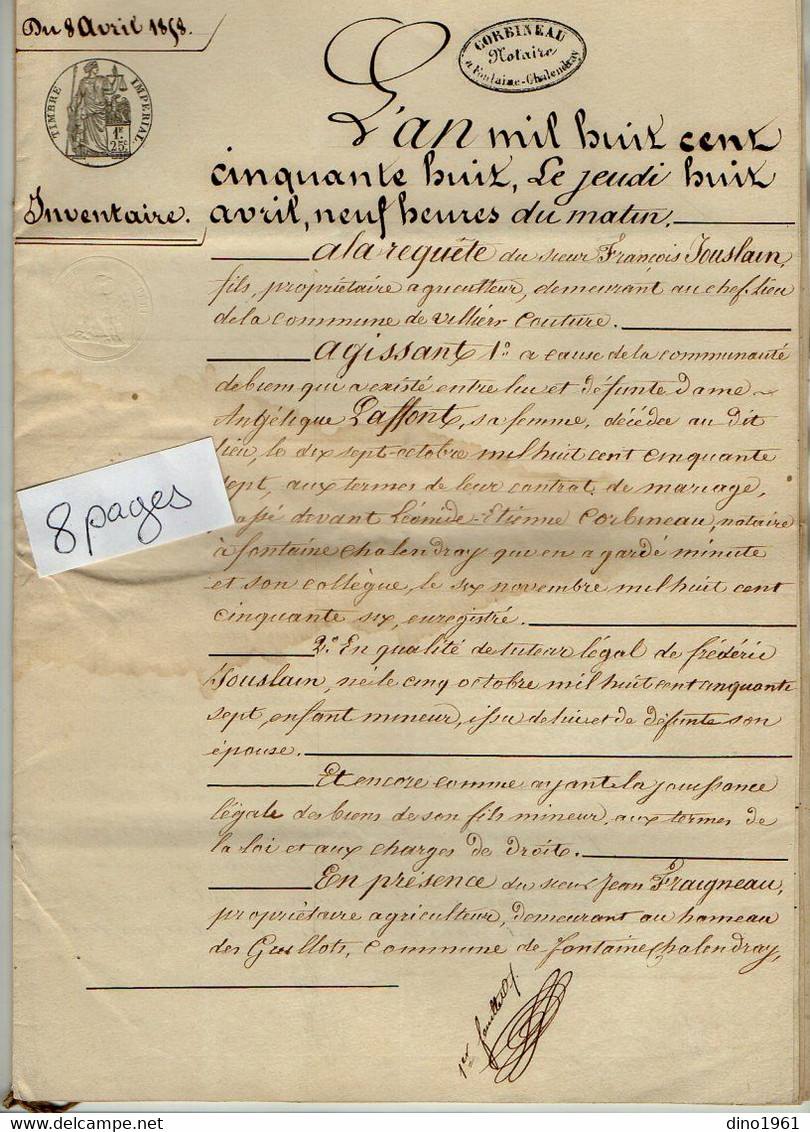 Du 8 Avril 1858.
CORBINEAU
Notaire
à Fontaine-Chalendray
TIMBRE IMPERIAL
1F.
25c.
L'an mil huit cent
cinquante huit, Le jeudi huit
Inventaire.
avril, neuf heures du matin.
a la requête du sieur François Jouslain,
fils, propriétaire agriculteur, demeurant au chef-lieu
de la commune de Villiers Couture.
agissant 1o a cause de la communauté
de biens qui a existé entre lui et défunte dame
Angélique Laffont, sa femme, décédée au dit
lieu, le dix sept octobre mil huit cent cinquante
sept, aux termes de leur contrat de mariage,
passé devant Léonide-Etienne Corbineau, notaire
à fontaine chalendray qui en a gardé minute
et son collègue, le six novembre mil huit cent
cinquante six, enregistré.
8 pages
2o En qualité de tuteur légal de frédéric
Jouslain, né le cinq octobre mil huit cent cinquante
sept, enfant mineur, issu de lui et de défunte son
épouse.
Et encore comme ayant la jouissance
légale des biens de son fils mineur, aux termes de
la loi et aux charges de droite.
En présence du sieur Jean Fraigneau,
propriétaire agriculteur, demeurant au hameau
des Guillots, commune de fontaine chalendray,
1er feuillet
dino1961